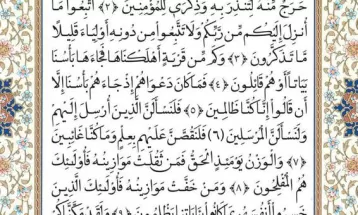 حَرَجٌ مِنْهُ لِتُنْذِرَ بِهِ وَذِكْرَىٰ لِلْمُؤْمِنِينَ ﴿٢﴾ اتَّبِعُوا مَا
أُنْزِلَ إِلَيْكُمْ مِنْ رَبِّكُمْ وَلَا تَتَّبِعُوا مِنْ دُونِهِ أَوْلِيَاءَ قَلِيلًا
مَا تَذَكَّرُونَ ﴿٣﴾ وَكَمْ مِنْ قَرْيَةٍ أَهْلَكْنَاهَا فَجَاءَهَا بَأْسُنَا
بَيَاتًا أَوْ هُمْ قَائِلُونَ ﴿٤﴾ فَمَا كَانَ دَعْوَاهُمْ إِذْ جَاءَهُمْ بَأْسُنَا إِلَّا
أَنْ قَالُوا إِنَّا كُنَّا ظَالِمِينَ ﴿٥﴾ فَلَنَسْأَلَنَّ الَّذِينَ أُرْسِلَ إِلَيْهِمْ
وَلَنَسْأَلَنَّ الْمُرْسَلِينَ ﴿٦﴾ فَلَنَقُصَّنَّ عَلَيْهِمْ بِعِلْمٍ وَمَا كُنَّا غَائِبِينَ
﴿٧﴾ وَالْوَزْنُ يَوْمَئِذٍ الْحَقُّ فَمَنْ ثَقُلَتْ مَوَازِينُهُ فَأُولَٰئِكَ
هُمُ الْمُفْلِحُونَ ﴿٨﴾ وَمَنْ خَفَّتْ مَوَازِينُهُ فَأُولَٰئِكَ الَّذِينَ
خَسِرُوا أَنْفُسَهُمْ بِمَا كَانُوا بِآيَاتِنَا يَظْلِمُونَ ﴿٩﴾ وَلَقَدْ مَكَّنَّاكُمْ